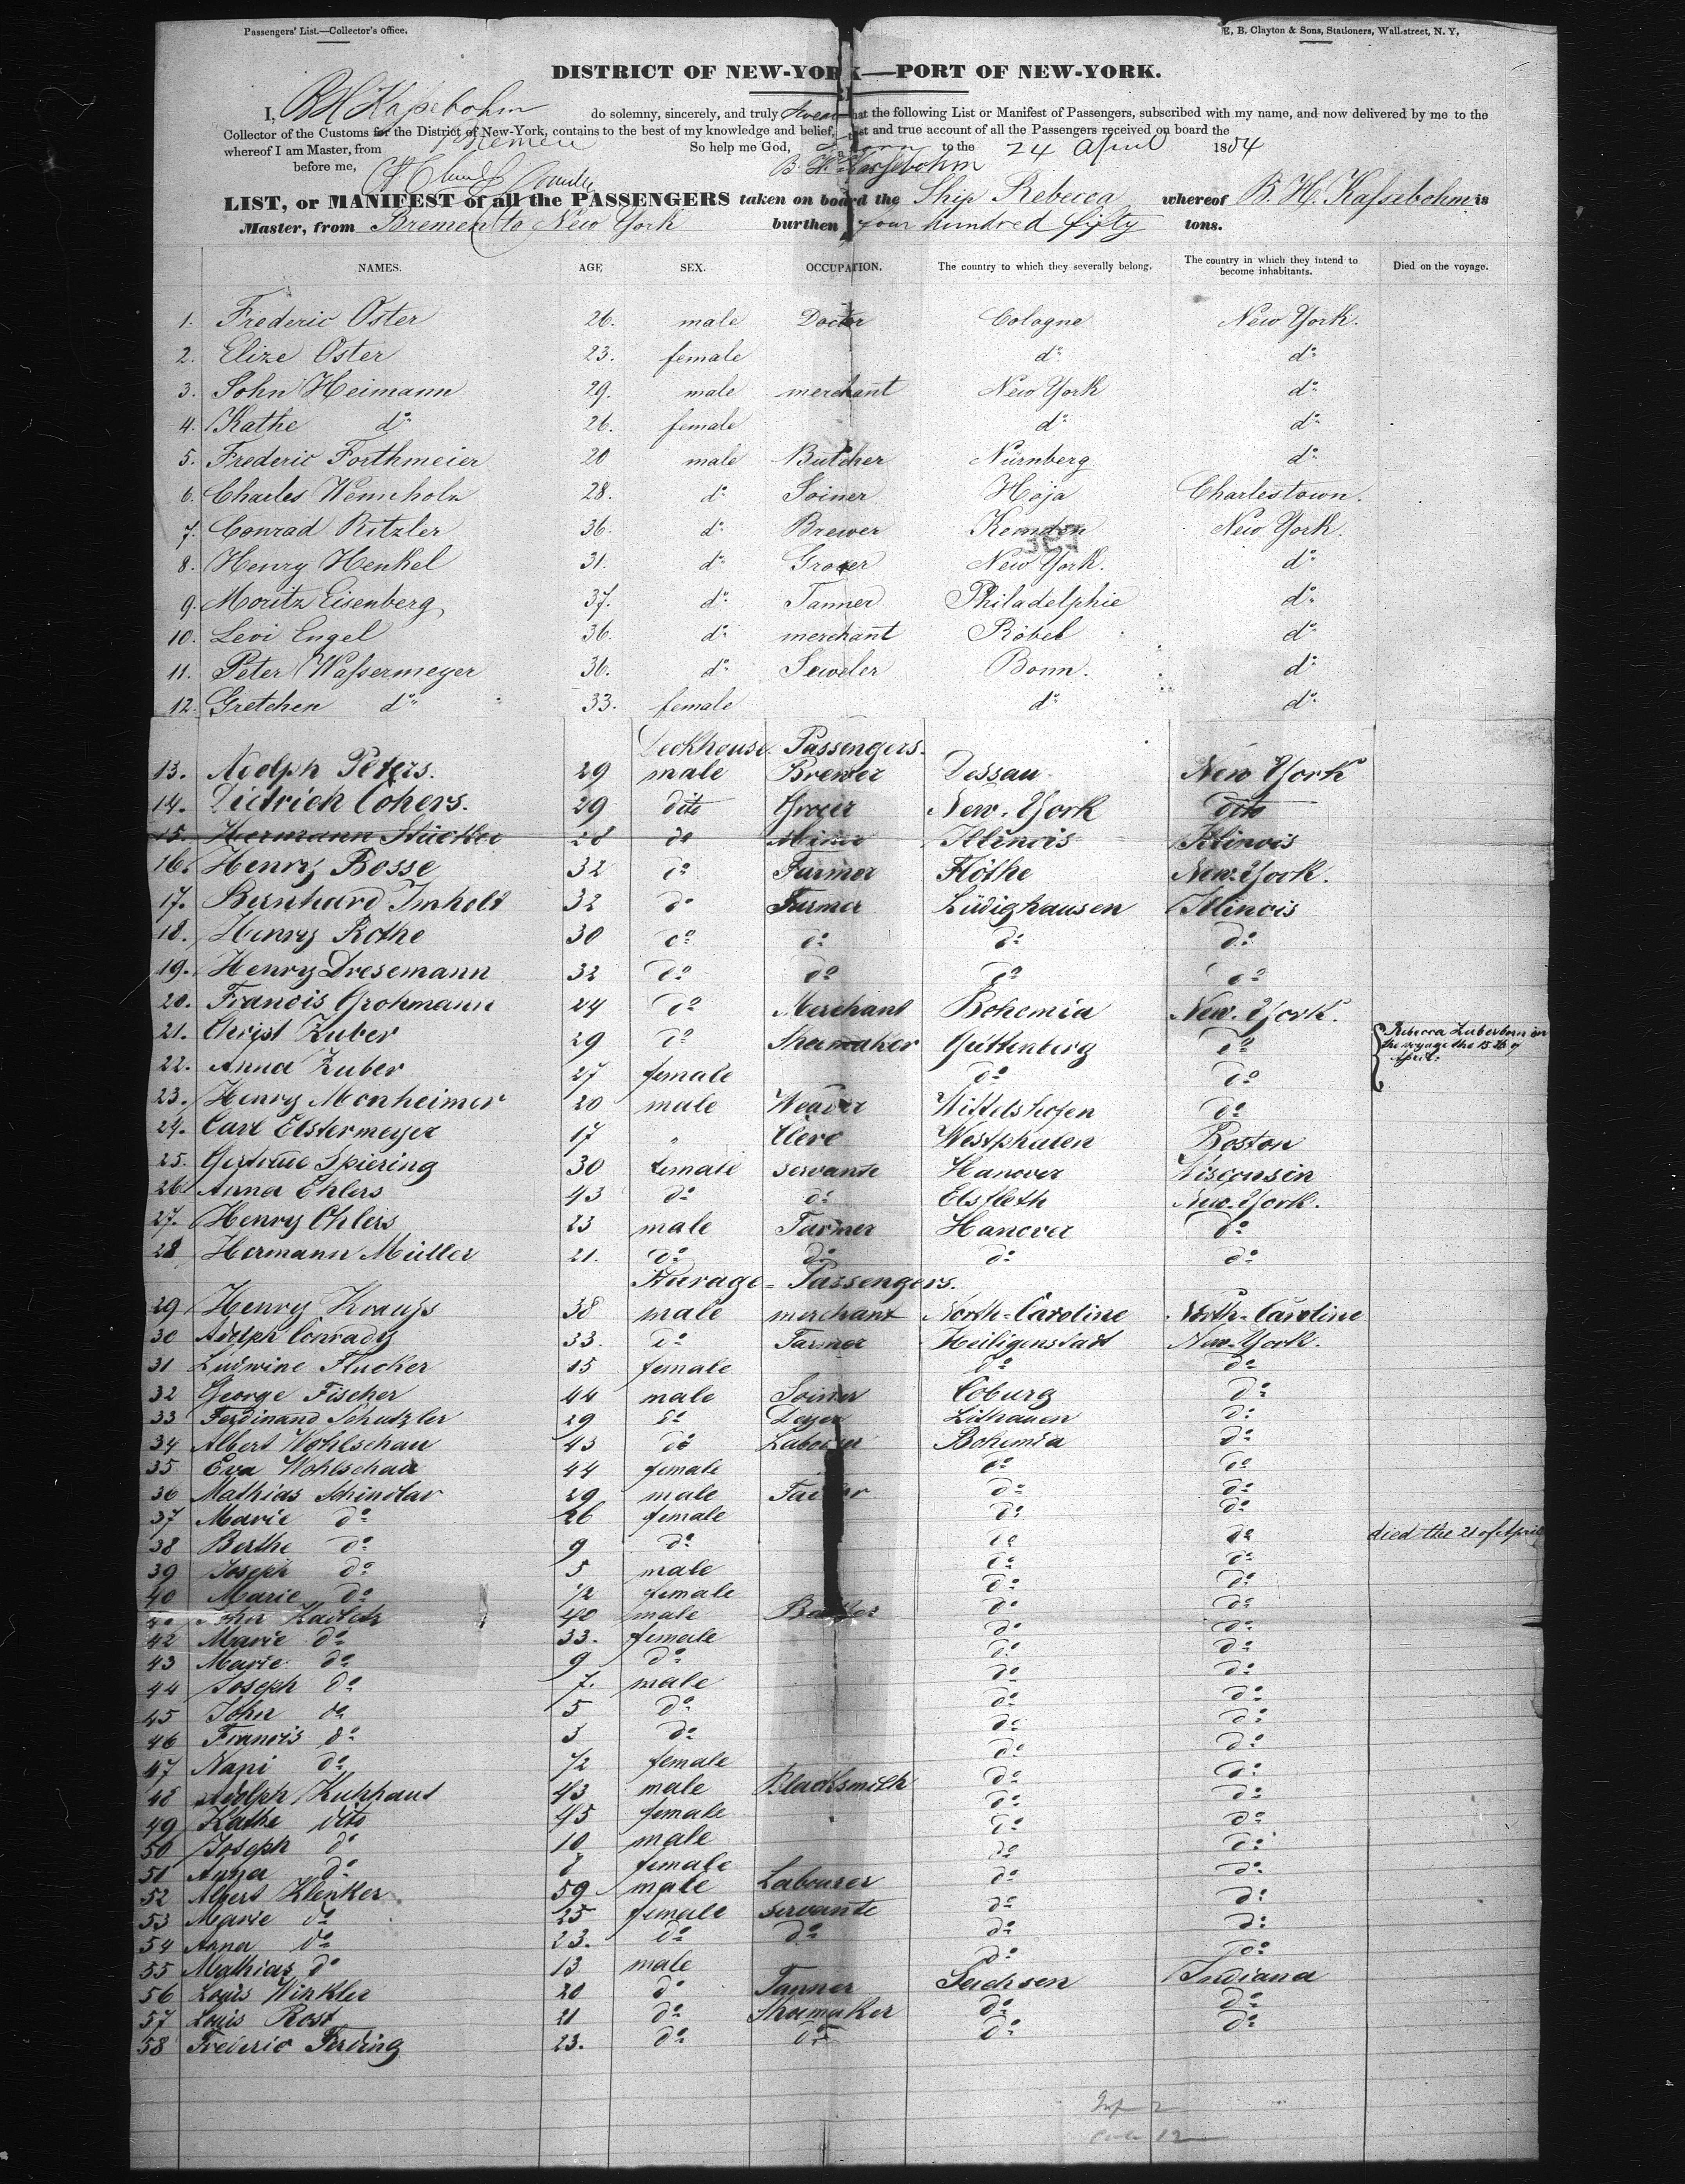 Passengers' List.—Collector's office.
E. B. Clayton & Sons, Stationers, Wall-street, N. Y.
DISTRICT OF NEW-YORK—PORT OF NEW-YORK.
I, B H Kassebohm do solemny, sincerely, and truly swear that the following List or Manifest of Passengers, subscribed with my name, and now delivered by me to the
Collector of the Customs for the District of New-York, contains to the best of my knowledge and belief, just and true account of all the Passengers received on board the
whereof I am Master, from Bremen So help me God, to the 24 April 1854
before me, B. H. Kassebohm
LIST, or MANIFEST of all the PASSENGERS taken on board the Ship Rebecca whereof B. H. Kassebohm is
Master, from Bremen to New York burthen four hundred fifty tons.
NAMES. AGE SEX. OCCUPATION. The country to which they severally belong. The country in which they intend to become inhabitants. Died on the voyage.
1. Frederic Oster 26. male Docter Cologne New York.
2. Elize Oster 23. female do do
3. John Heimann 29. male merchant New York do
4. Kathe do 26. female do do
5. Frederic Forthmeier 20 male Butcher Nürnberg do
6. Charles Wennholz 28. do Joiner Hoja Charlestown.
7. Conrad Ritzler 36. do Brewer Kemdon New York.
8. Henry Henkel 31. do Grocer New York. do
9. Moritz Eisenberg 37. do Tanner Philadelphie do
10. Levi Engel 36. do merchant Röbel do
11. Peter Wassermeyer 36. do Jeweler Bonn. do
12. Gretchen do 33. female do do
Deckhouse Passengers.
13. Adolph Peters. 29 male Brewer Dessau New York
14. Dietrich Cohers. 29 dito Grocer New-York dito
15. Hermann Stücker 28 do Miner Illinois Illinois
16. Henry Bosse 32 do Farmer Flöthe New-York.
17. Bernhard Imholt 32 do Farmer Lüdighausen Illinois
18. Henry Rothe 30 do do do do
19. Henry Dresemann 32 do do do do
20. Francis Grohmann 24 do Merchant Bohemia New-York.
21. Christ Zuber 29 do Shoemaker Guttenberg do Rebecca Zuber born on
the voyage the 15th of
April.
22. Anna Zuber 27 female do do
23. Henry Monheimer 20 male Weaver Wittelshofen do
24. Carl Elstermeyer 17 " Clerc Westphalen Boston
25. Gertrude Spiering 30 female servante Hanover Wisconsin
26 Anna Ehlers 43 do do Elsfleth New-York.
27. Henry Ohlers 23 male Farmer Hanover do
28 Hermann Müller 21. do do do do
Stearage-Passengers.
29 Henry Krauss 38 male merchant North-Caroline North-Caroline
30 Adolph Conrady 33. do Farmer Heiligenstadt New-York.
31 Ludwine Flucker 15 female do do
32 George Fischer 44 male Joiner Coburg do
33 Ferdinand Schutzler 29 do Dyer Lithauen do
34 Albert Wohlschau 43 do Labourer Bohemia do
35 Eva Wohlschau 44 female do do
36 Mathias Schindlar 29 male Tailor do do
37 Marie do 26 female do do
38 Berthe do 9 do do do died the 21 of April
39 Joseph do 5 male do do
40 Marie do 1/2 female do do
John Kadletz 40 male do do
42 Marie do 33. female do do
43 Marie do 9 do do do
44 Joseph do 7. male do do
45 John do 5 do do do
46 Francis do 3 do do do
47 Nani do 1/2 female do do
48 Adolph Kuhhaut 43 male Blacksmith do do
49 Kathe dito 45 female do do
50 Joseph do 10 male do do
51 Anna do 8 female do do
52 Albert Klenker 59 male Labourer do do
53 Marie do 25 female servante do do
54 Anna do 23. do do do do
55 Mathias do 13 male do do
56 Louis Winkler 20 do Tanner Sachsen Indiana
57 Louis Rost 21 do Shoemaker do do
58 Frederic Ferding 23. do do do do